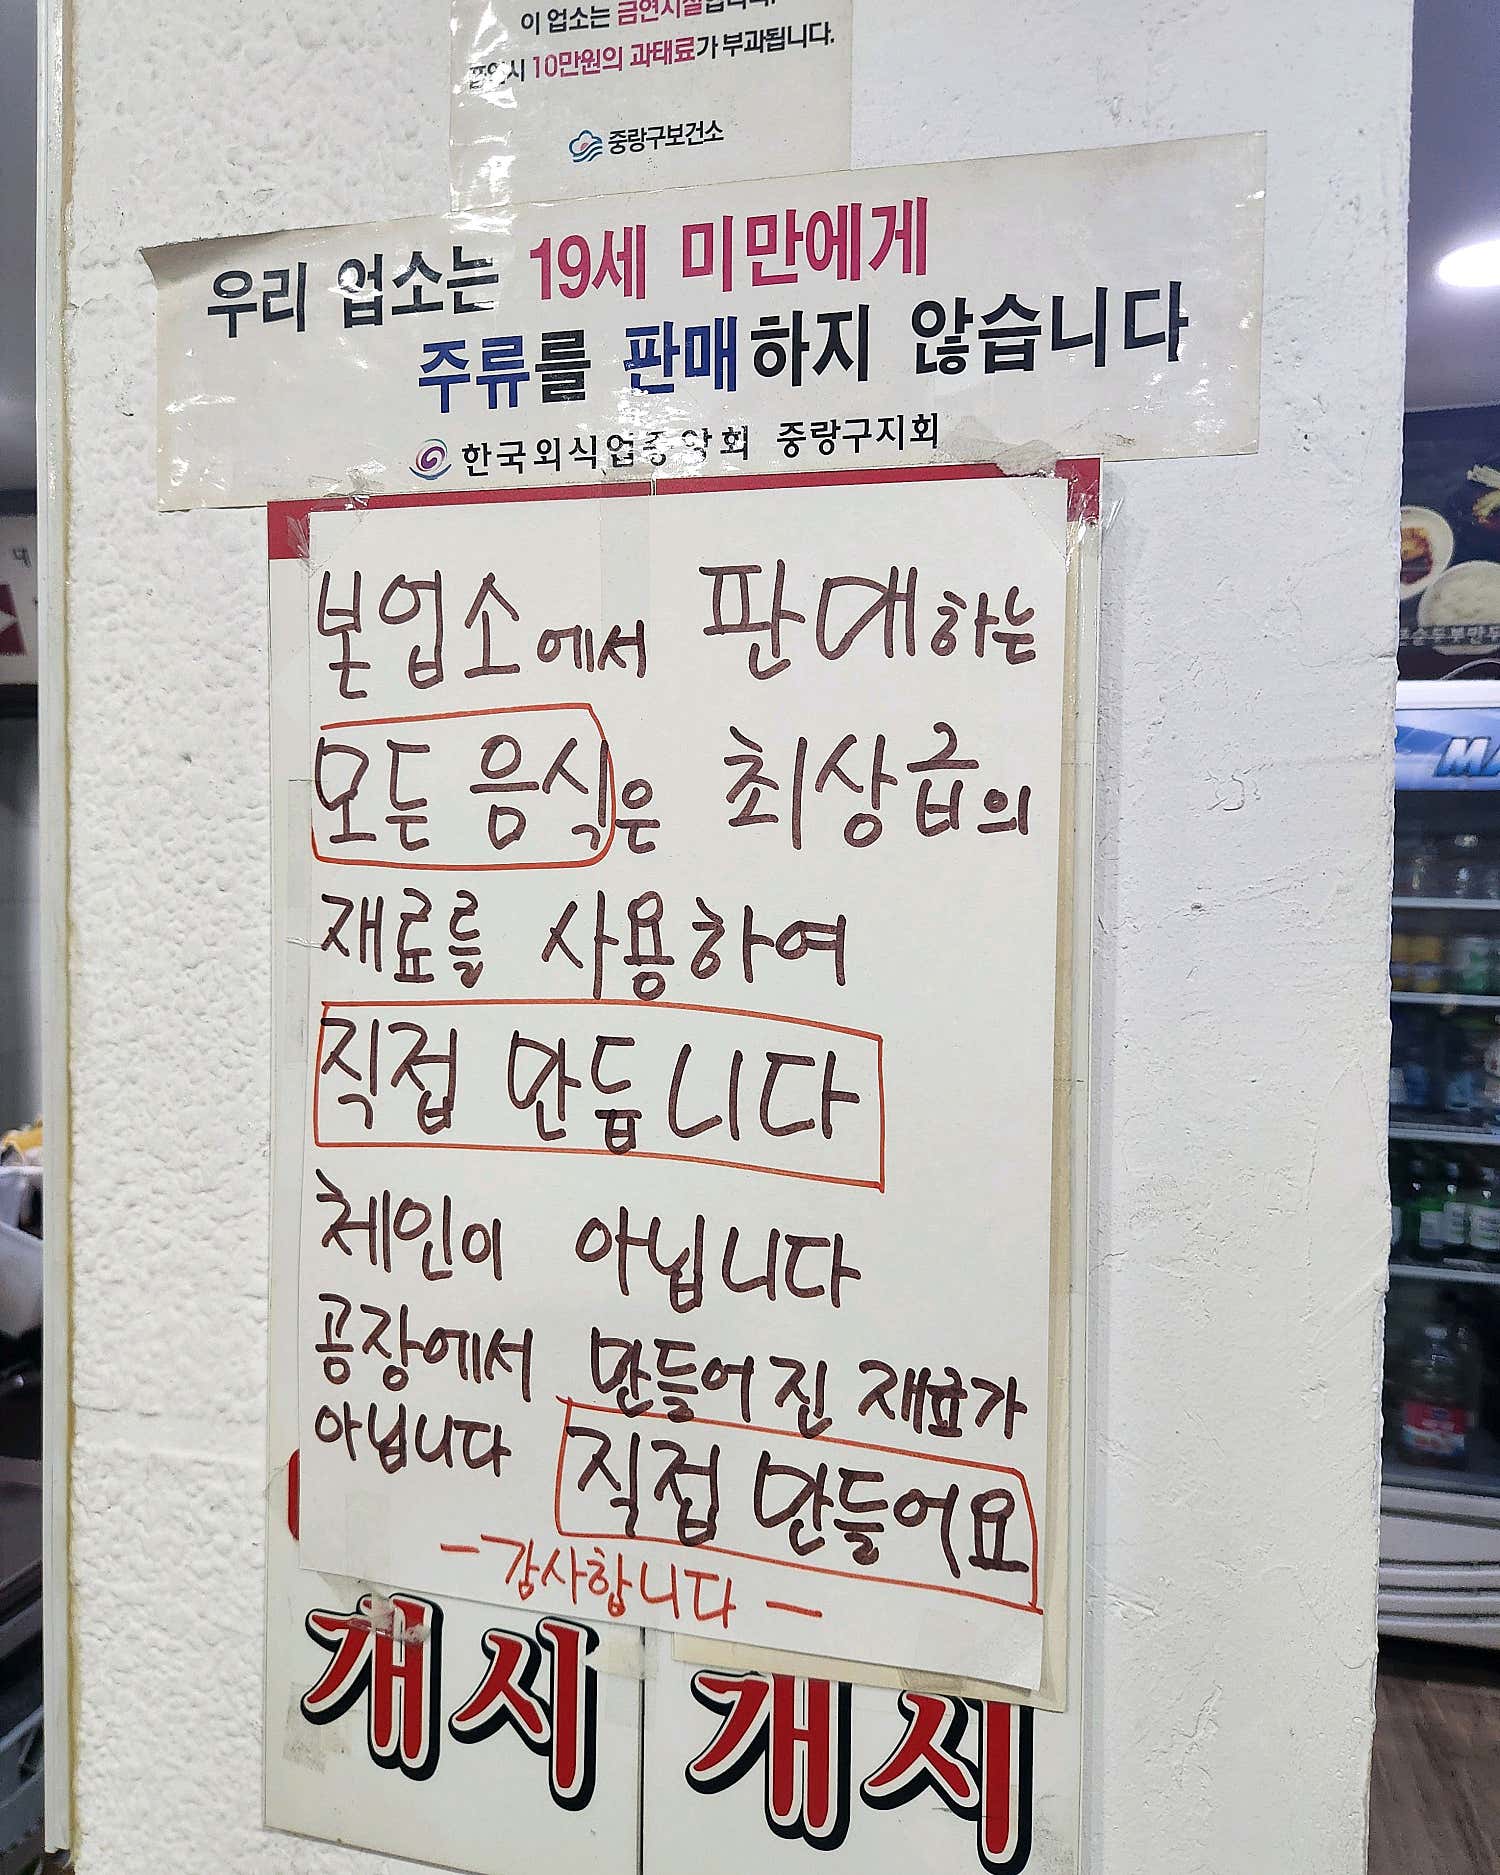 이 업소는 금연시설입니다.
흡연시 10만원의 과태료가 부과됩니다.
중랑구보건소
우리 업소는 19세 미만에게
주류를 판매하지 않습니다
한국외식업중앙회 중랑구지회
본업소에서 판매하는
모든 음식은 최상급의
재료를 사용하여
직접 만듭니다
체인이 아닙니다
공장에서 만들어진 재료가
아닙니다 직접 만들어요
-감사합니다-
개시 개시